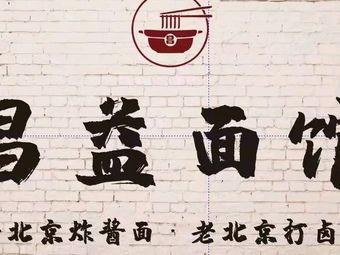 昌益面馆
北京炸醬面 · 老北京打卤